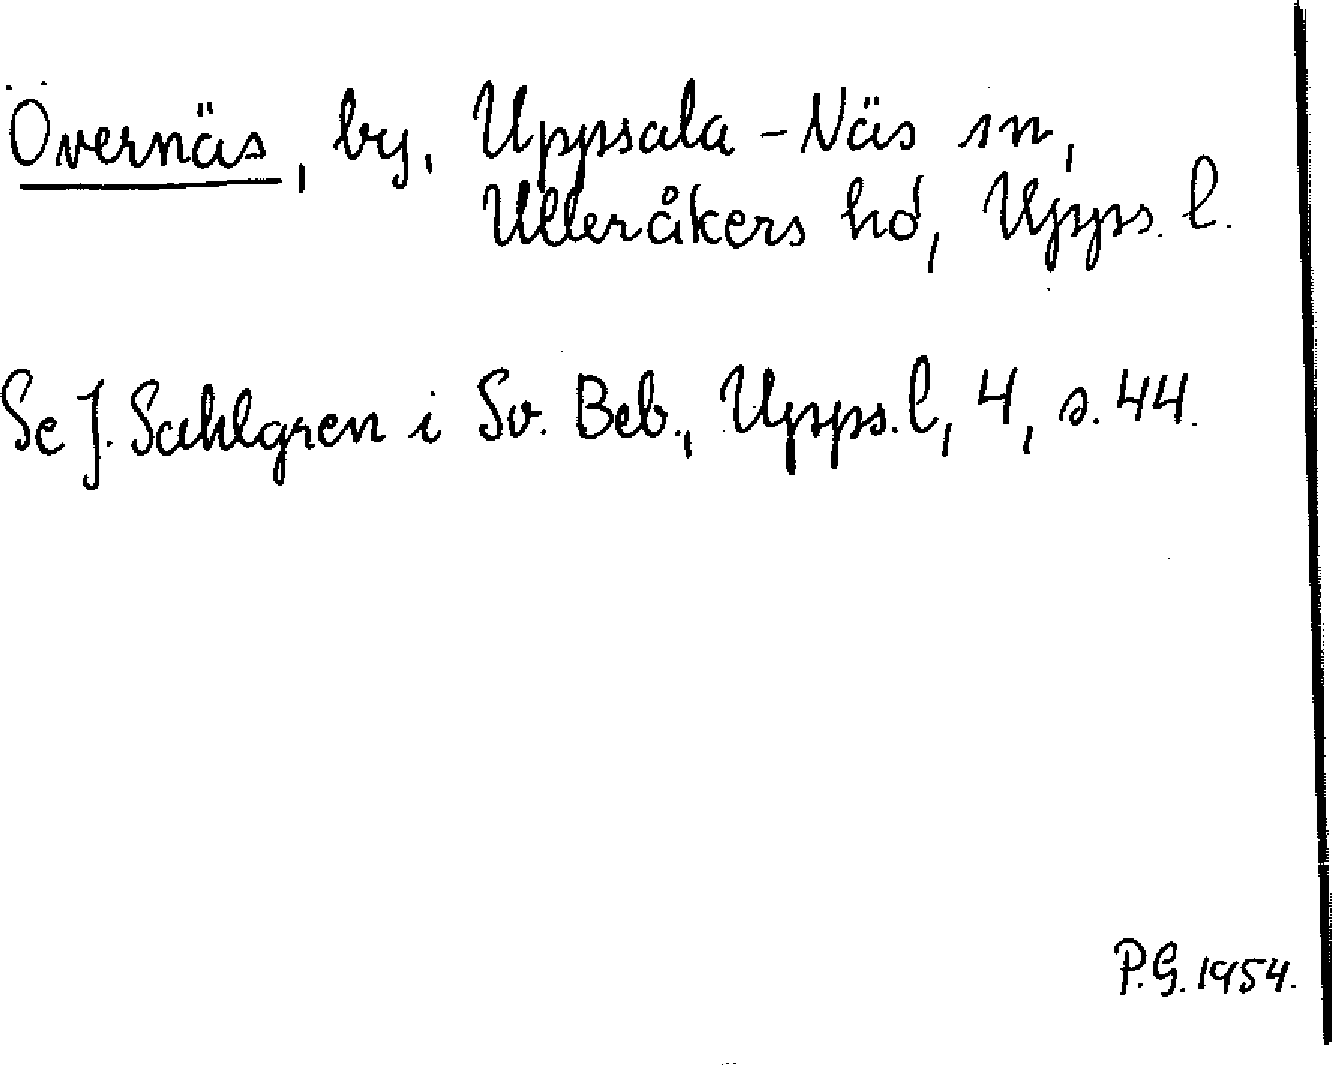 Övernäs, by, Uppsala-Näs sn,
Ulleråkers hd, Upps. l.
Se J. Sahlgren i Sv. Beb., Upps. l, 4, s. 44.
P.G. 1954.